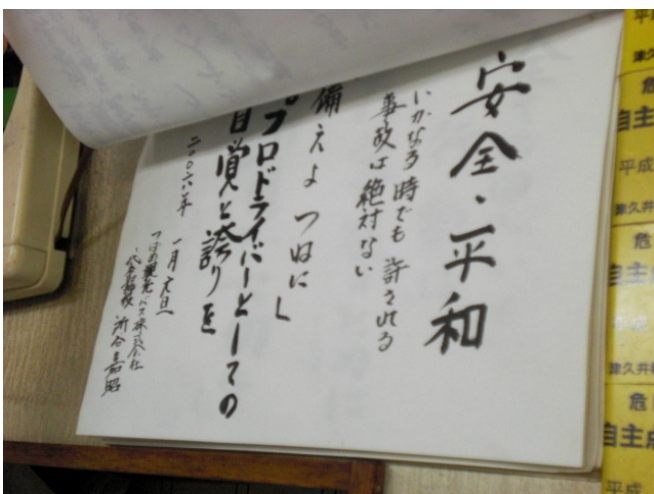 安全・平和
いかなる時でも許される
事故は絶対ない
備えよつねに」
“プロドライバーとしての
自覚と誇りを
二〇〇六年
一月元旦
つばめ観光バス株式会社
代表取締役
嘉昭
平成
津久井
危
自主点
平成
津久井
危
自主点
平成
津久井
危
自主点
平成